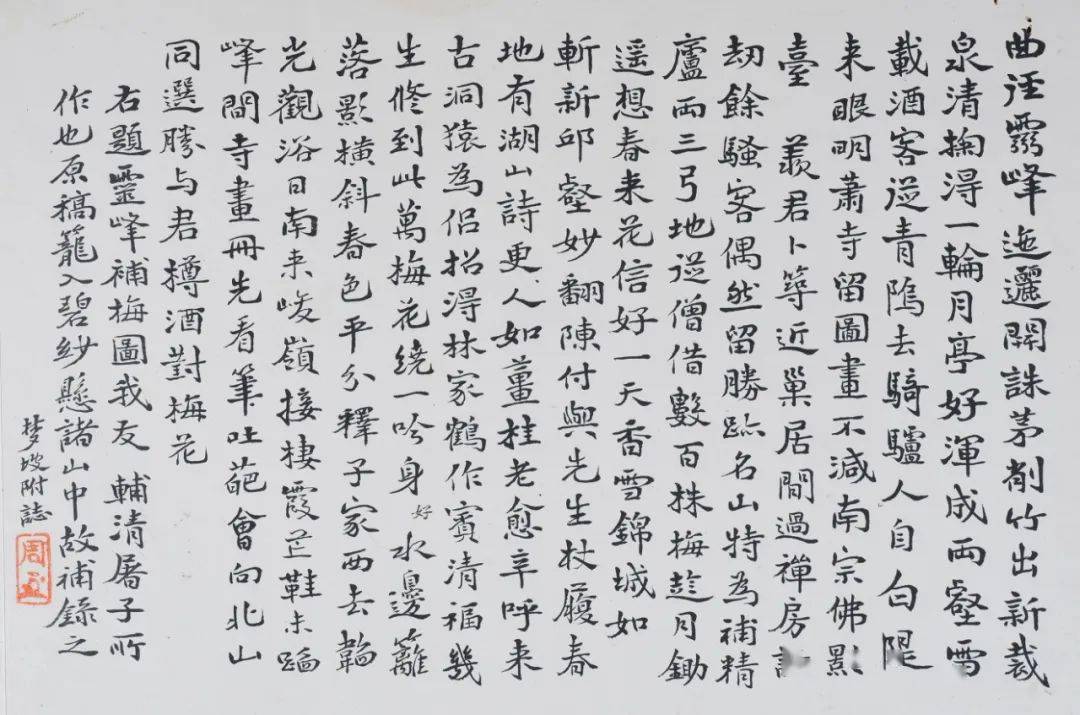 曲迳霛峰迤邐開誅茅削竹出新裁
泉清掬淂一輪月亭好渾成兩壑雪
載酒客從青隖去騎驢人自白隄
来眼明蕭寺留圖畫不減南宗佛影
臺 羨君卜築近巢居閒過禪房
劫餘騷客偶然留勝跡名山特為補精
廬兩三弓地從僧借數百株梅趁月鋤
遥想春来花信好一天香雪錦城如
斬新邱壑妙翻陳付與先生杖履春
地有湖山詩更人如薑桂老愈辛呼来
古洞猿為侣招淂林家鶴作賓清福幾
生修到此萬梅花繞一吟身 好 水邊籬
落影橫斜春色平分釋子家西去韜
光觀浴日南来峻嶺接棲霞芒鞋未踏
峰間寺畫冊先看筆吐葩會向北山
同選勝与君樽酒對梅花
右題靈峰補梅圖我友 輔清屠子所
作也原稿籠入碧紗懸諸山中故補錄之
梦坡附誌
周